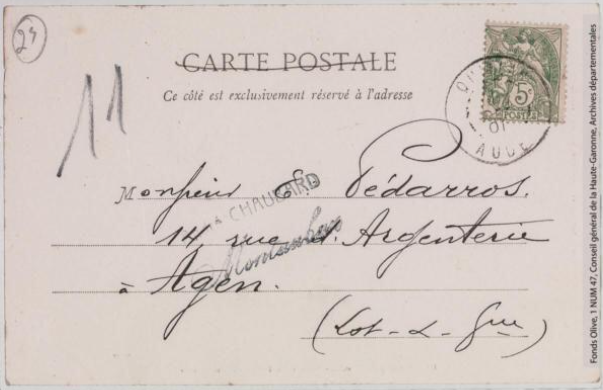 29
CARTE POSTALE
Ce côté est exclusivement réservé à l'adresse
11
5c
POSTES
01
AUDE
Monsieur G. Pédarros.
CHAUCARD
14, rue d'Argenterie
Montauban
à Agen.
(Lot-&-Gne)
Fonds Olive, 1 NUM 47, Conseil général de la Haute-Garonne, Archives départementales